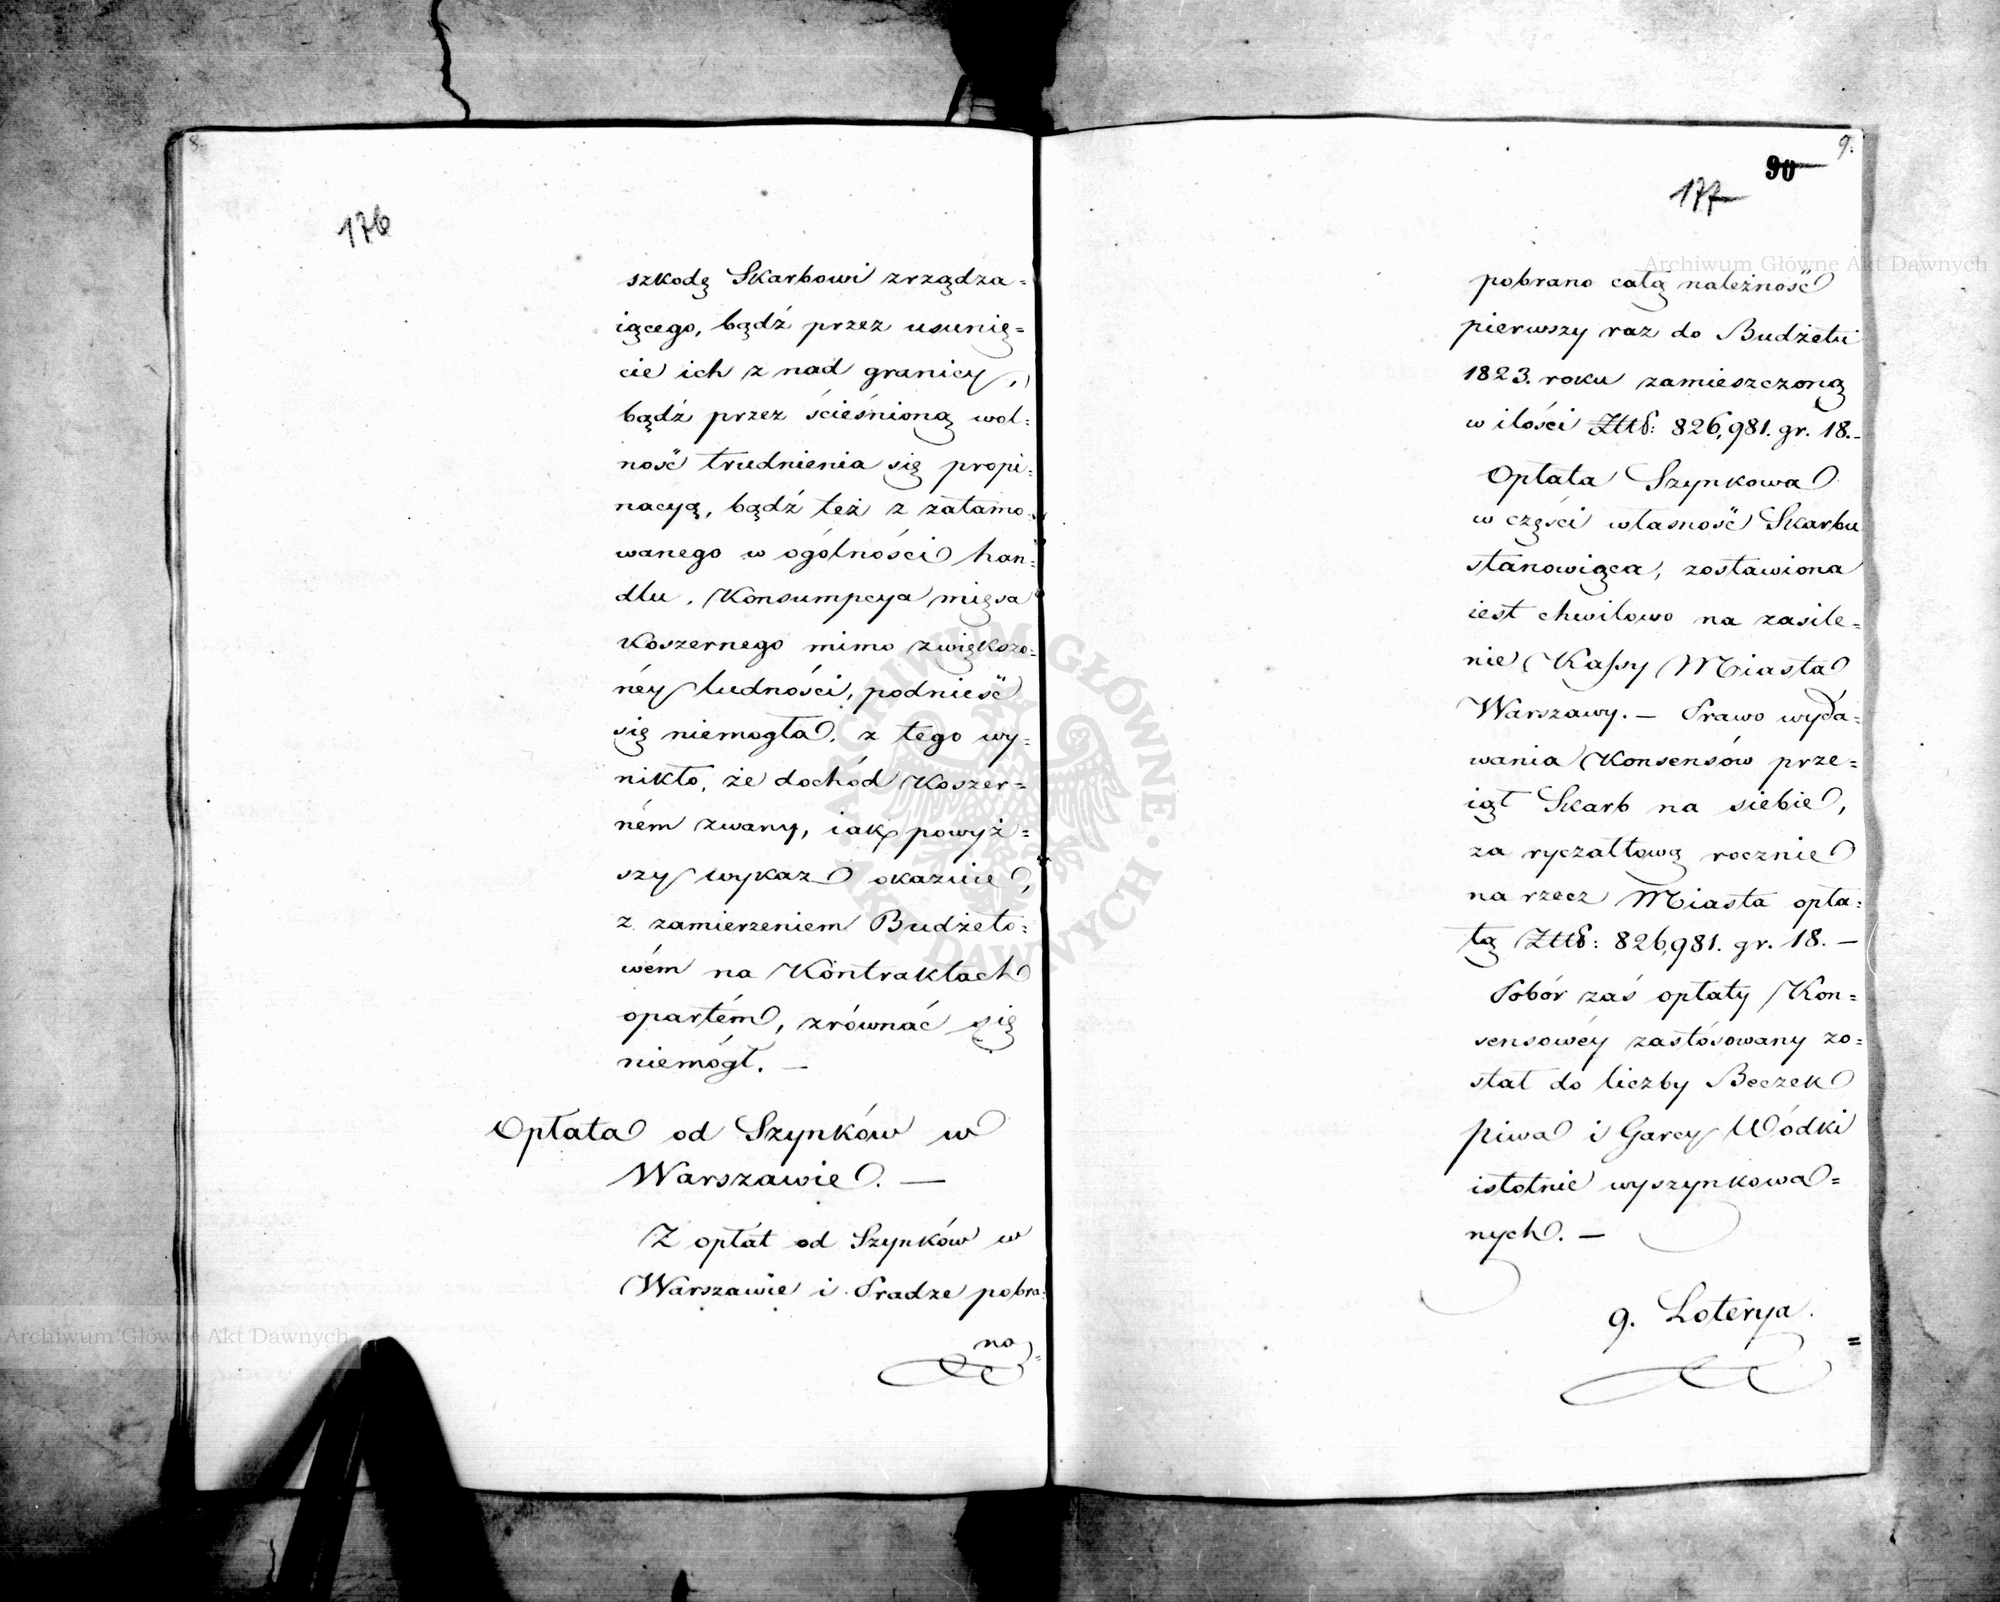 8.
176
szkodę Skarbowi zrządza=
iącego, bądź przez usunię=
cie ich z nad granicy,
bądź przez ścieśnioną wol=
ność trudnienia się propi=
nacyą, bądź też z zatamo=
wanego w ogólności han=
dlu. Konsumpcya mięsa
Koszernego mimo zwiększo=
néy ludności, podnieść
się niemogła, z tego wy=
nikło, że dochód Koszer=
ném zwany, iak powyż=
szy wykaz okazuie,
z zamierzeniem Budżeto=
wém na Kontraktach
opartém, zrównać się
niemógł. —
Opłata od Szynków w
Warszawie. —
Z opłat od Szynków w
Warszawie i Pradze pobra=
no
9.
90
177
pobrano całą należność
pierwszy raz do Budżetu
1823. roku zamieszczoną
w ilości Złtt: 826,981. gr. 18. -
Opłata Szynkowa
w części własność Skarbu
stanowiąca, zostawiona
iest chwilowo na zasile=
nie Kassy Miasta
Warszawy. — Prawo wyda=
wania Konsensów prze=
iął Skarb na siebie,
za ryczałtową rocznie
na rzecz Miasta opła=
tą Złtt: 826,981. gr. 18. —
Pobór zaś opłaty Kon=
sensowéy zastósowany zo=
stał do liczby Beczek
piwa i Garcy Wódki
istotnie wyszynkowa=
nych. —
9. Loterya.
Archiwum Główne Akt Dawnych
Archiwum Główne Akt Dawnych
ARCHIWUM GŁÓWNE · AKT DAWNYCH ·